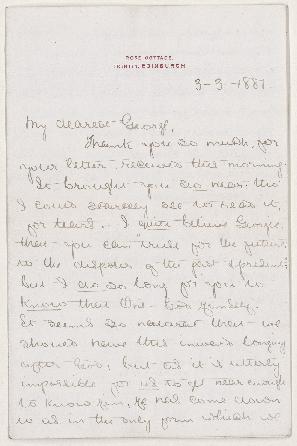 ROSE COTTAGE,
TRINITY, EDINBURGH
3-3-1887.
My dearest George,
Thank you so much for
your letter - received this morning.
It brought you so near. tho'
I could scarcely see to read it,
for tears. I quite believe George,
that you can trust for the future,
to the disposer of the past & present;
but I do so long for you to
know that One - God Himself.
It seems so natural that we
should have this inward longing
after God, but as it is utterly
impossible for us to get near enough
to know Him, He has come down
to us in the only form which we